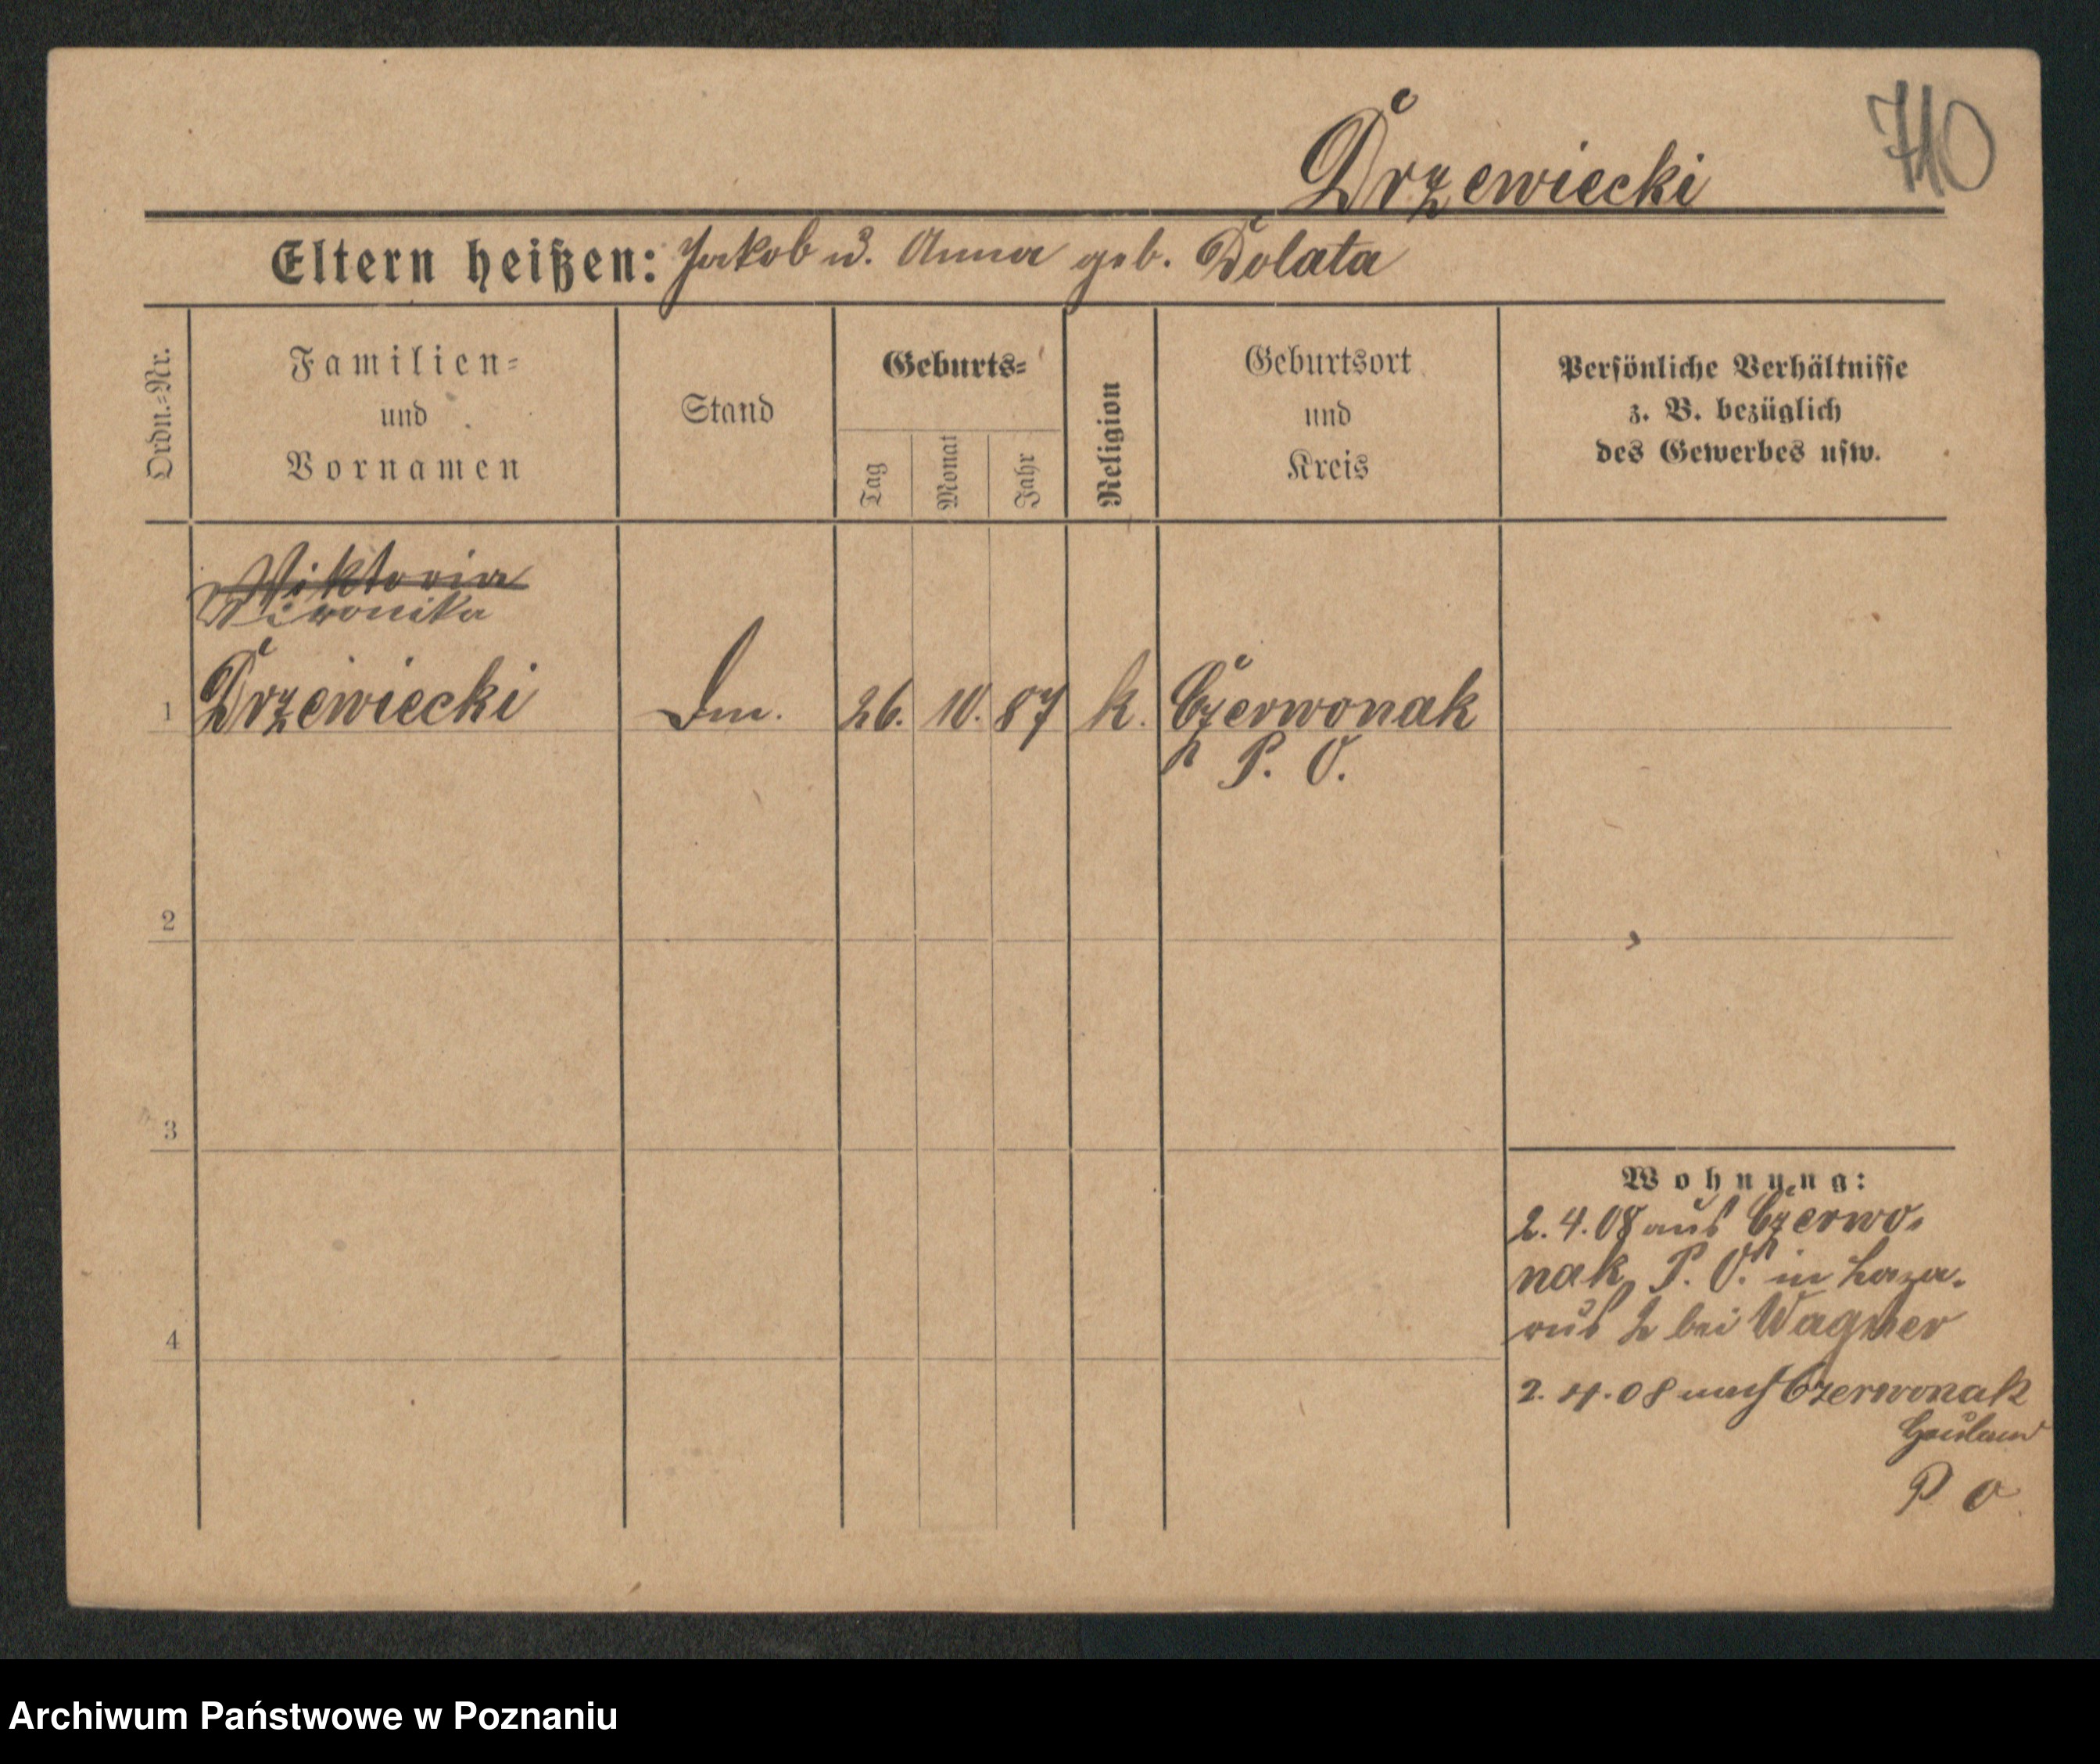 710
Drzewiecki
Eltern heißen: Jakob u. Anna geb. Dolata
Ordn.-Nr.
Familien-
und
Vornamen
Stand
Geburts-
Tag
Monat
Jahr
Religion
Geburtsort
und
Kreis
Persönliche Verhältnisse
z. B. bezüglich
des Gewerbes usw.
Wiktoria
Drzewiecki
1
26. 10. 87
k.
Czerwonak
P. O.
2
3
4
Wohnung:
2.4.08 aus Czerwo-
nak P. O. in Laza-
rus 2 bei Wagner
2.4.08 nach Czerwonak
Hauland
P O
Archiwum Państwowe w Poznaniu